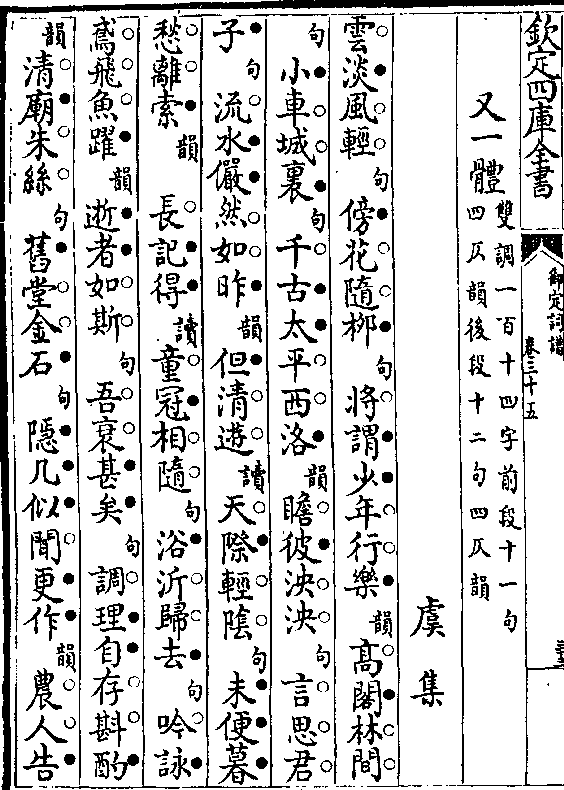 欽定四庫全書
御定詞譜
卷三十五
又一體
雙調一百十四字前段十一句
四仄韻後段十二句四仄韻
虞集
雲淡風輕句傍花隨柳句將謂少年行樂韻高閣林間
句小車城裏句千古太平西洛韻瞻彼泱泱句言思君
子句流水儼然如昨韻但清遊讀天際輕陰句未便暮
愁離索韻長記得讀童冠相隨句浴沂歸去句吟詠
鳶飛魚躍韻逝者如斯句吾衰甚矣句調理自存斟酌
韻清廟朱絲句舊堂金石句隱几似聞更作韻農人告